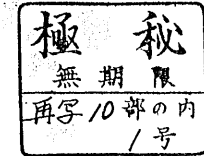 極秘
無期限
再写10部の内
1号